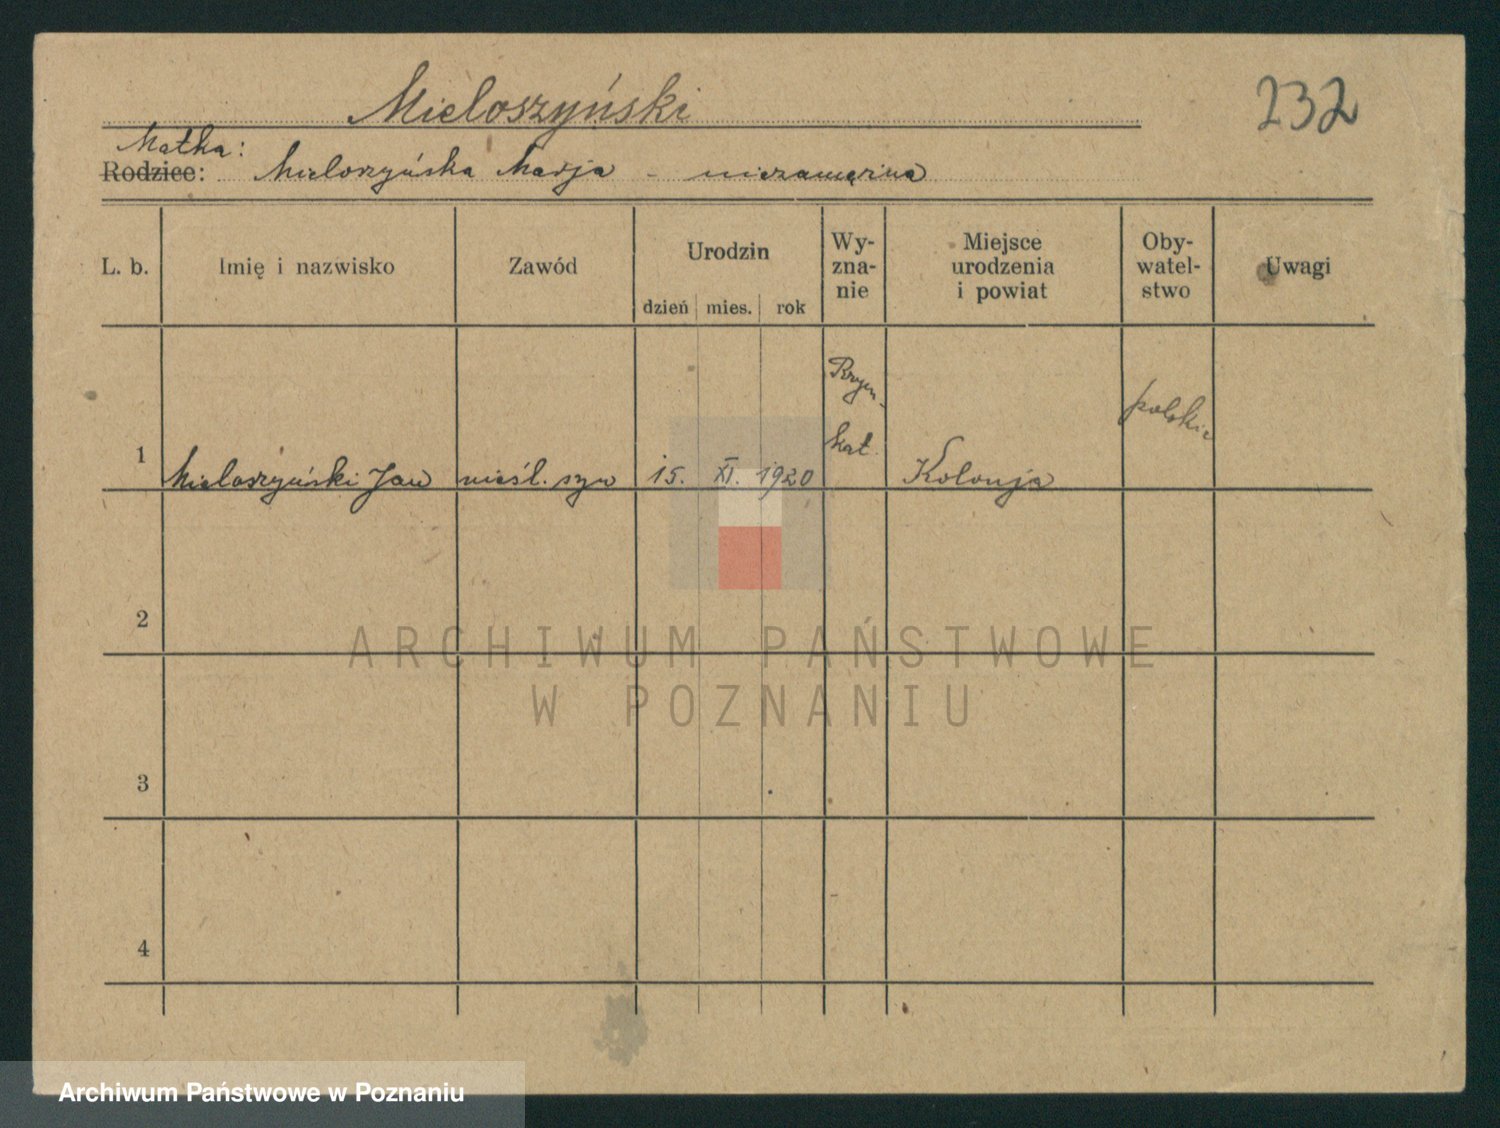 Mieloszyński
232
Matka:
Rodzice: Mieloszyńska Marja - niezamężna
L. b. Imię i nazwisko Zawód Urodzin dzień mies. rok Wy-
zna-
nie Miejsce
urodzenia
i powiat Oby-
watel-
stwo Uwagi
1 Mieloszyński Jan nieśl. syn 15. XI. 1920 Rzym.-
kat. Kolonja polskie
2
3
4
ARCHIWUM PAŃSTWOWE
W POZNANIU
Archiwum Państwowe w Poznaniu